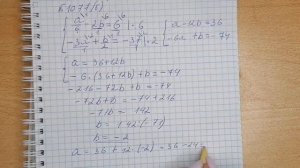 Б 1077(б)
a/6 - 2b = 6 | · 6
-3a + b/2 = -37 | · 2
a - 12b = 36
-6a + b = -74
a = 36 + 12b
-6 · (36 + 12b) + b = -74
-216 - 72b + b = -74
-72b + b = -74 + 216
-71b = 142
b = 142 : (-71)
b = -2
a = 36 + 12 · (-2) = 36 - 24